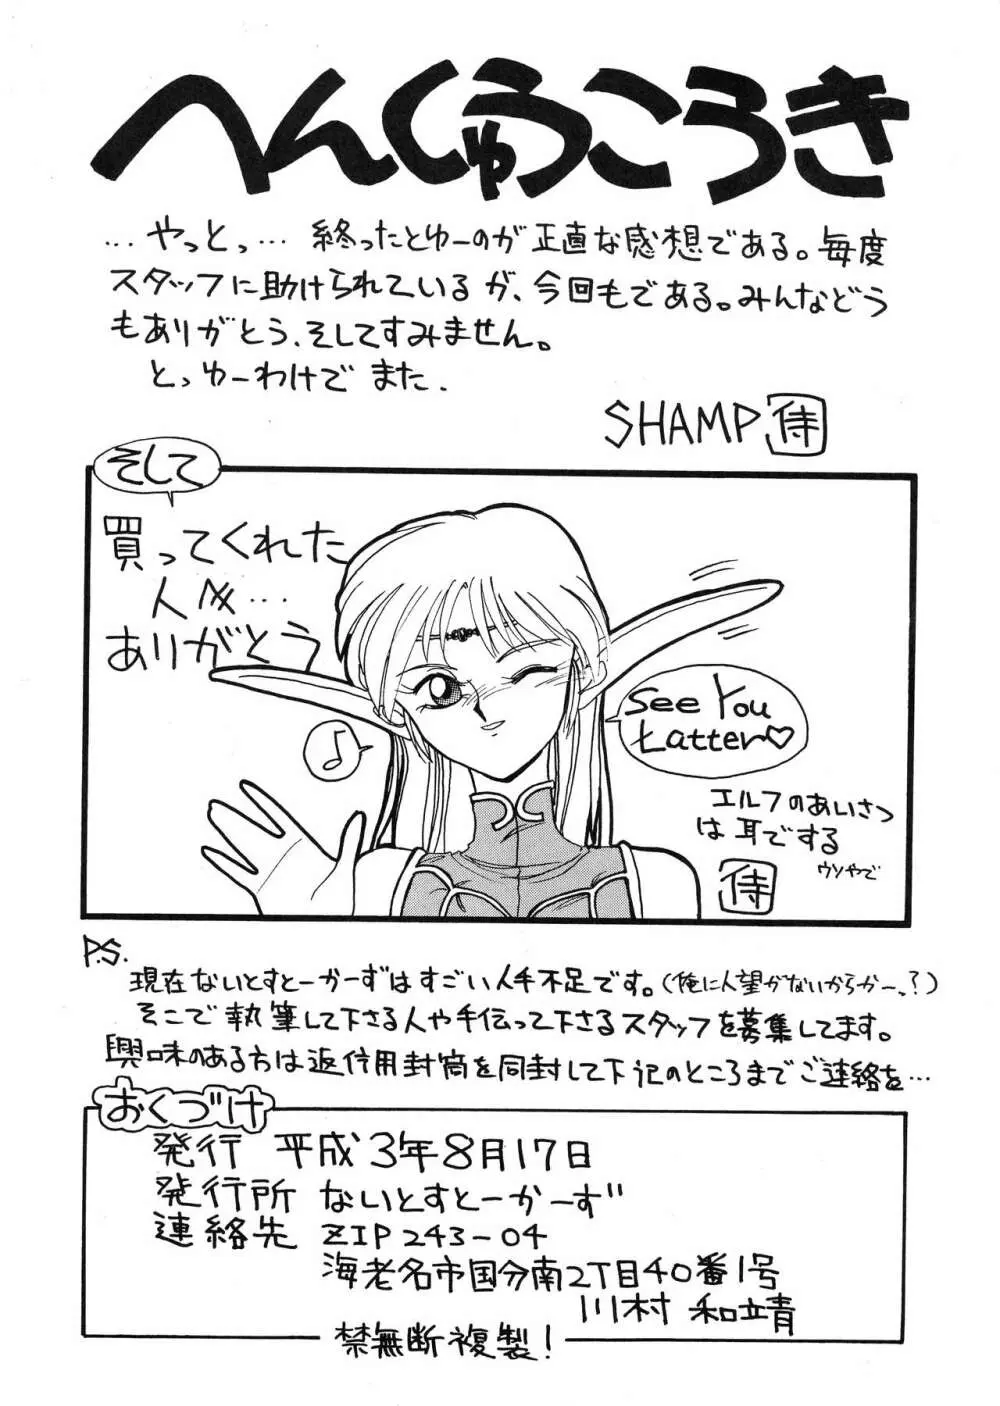 へんしゅうこうき
…やっとっ…終ったとゆーのが正直な感想である。毎度
スタッフに助けられているが、今回もである。みんなどう
もありがとう、そしてすみません。
とっゆーわけで また.
SHAMP 侍
そして
買ってくれた
人々…
ありがとう
See You
Latter♡
♪
エルフのあいさつ
は耳でする
ウソやで
侍
P.S.
現在ないとすとーかーずはすごい人手不足です。(俺に人望がないからかーっ?)
そこで執筆して下さる人や手伝って下さるスタッフを募集してます。
興味のある方は返信用封筒を同封して下記のところまでご連絡を…
おくづけ
発行 平成3年8月17日
発行所 ないとすとーかーず
連絡先 ZIP 243-04
海老名市国分南2丁目40番1号
川村 和靖
禁無断複製!